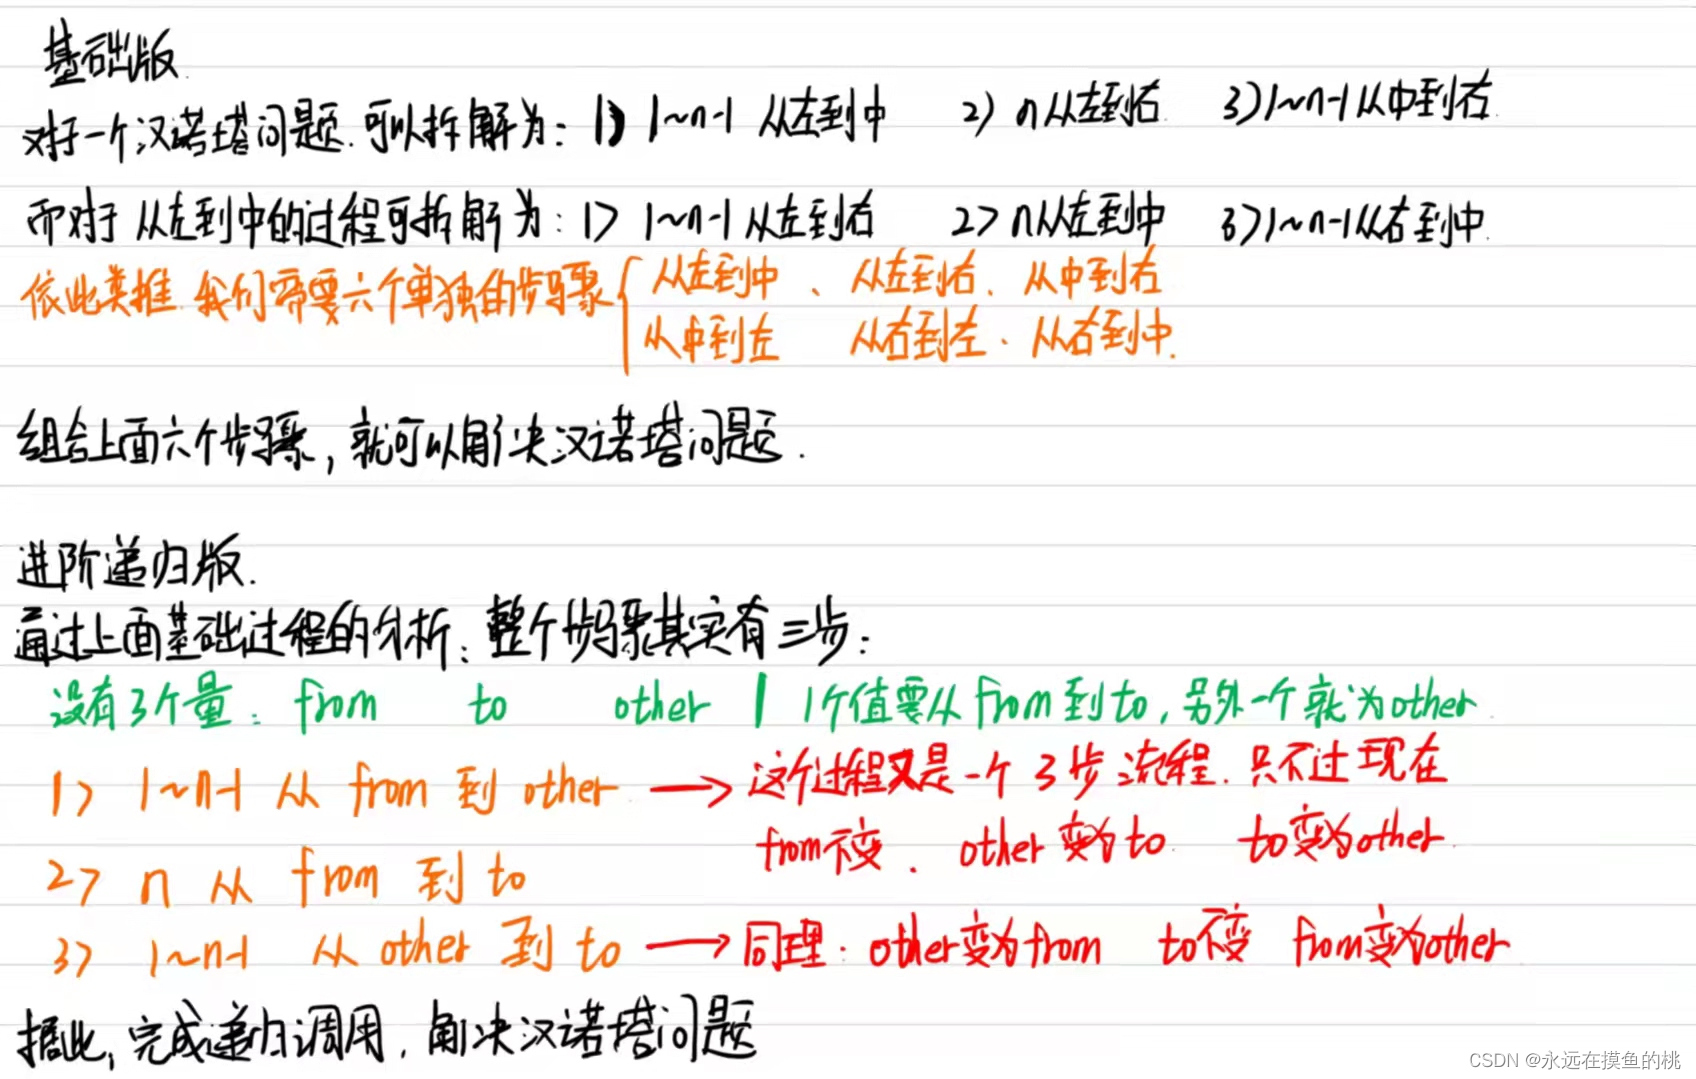 基础版.
对于一个汉诺塔问题.可以拆解为：1) 1~n-1 从左到中 2) n从左到右 3) 1~n-1从中到右.
而对于 从左到中的过程可拆解为：1> 1~n-1从左到右 2> n从左到中 3>1~n-1从右到中.
依此类推.我们需要六个单独的步骤{从左到中、从左到右、从中到右
从中到左 从右到左、从右到中.
组合上面六个步骤，就可以解决汉诺塔问题.
进阶递归版.
通过上面基础过程的分析：整个步骤其实有三步：
设有3个量：from to other | 1个值要从from到to，另外一个就为other.
1> 1~n-1 从 from 到 other → 这个过程又是一个3步流程.只不过现在
from不变. other变为to. to变为other.
2> n 从 from 到 to
3> 1~n-1 从 other 到 to → 同理：other变为from to不变 from变为other
据此，完成递归调用，解决汉诺塔问题
CSDN @永远在摸鱼的桃